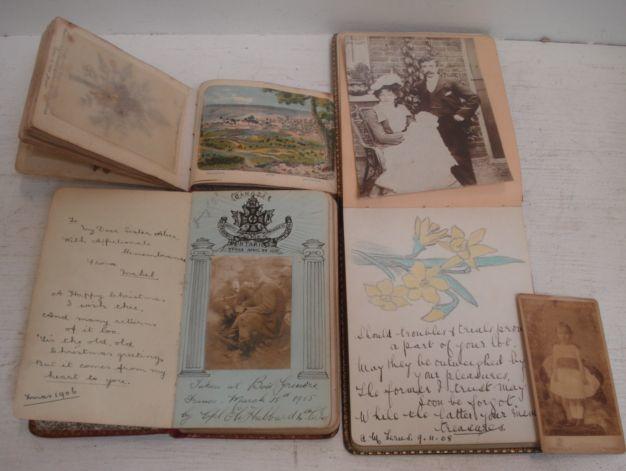 To
My Dear Sister Alice
With Affectionate
Remembrance
From
Mabel
A Happy Christmas
I wish thee,
And many returns
of it too.
'Tis the old, old
Christmas greeting
But it comes from my
heart to you.
Xmas 1906
CANADA
ONTARIO
YPRES APRIL
Taken at Bois Grenier
France. March 15th 1915
by Cpl Hubbard
Should troubles & trials prove
a part of your lot.
May they be outweighed by
your pleasures,
The former I trust may
soon be forgot,
While the latter, your mem
treasures.
9.11.08